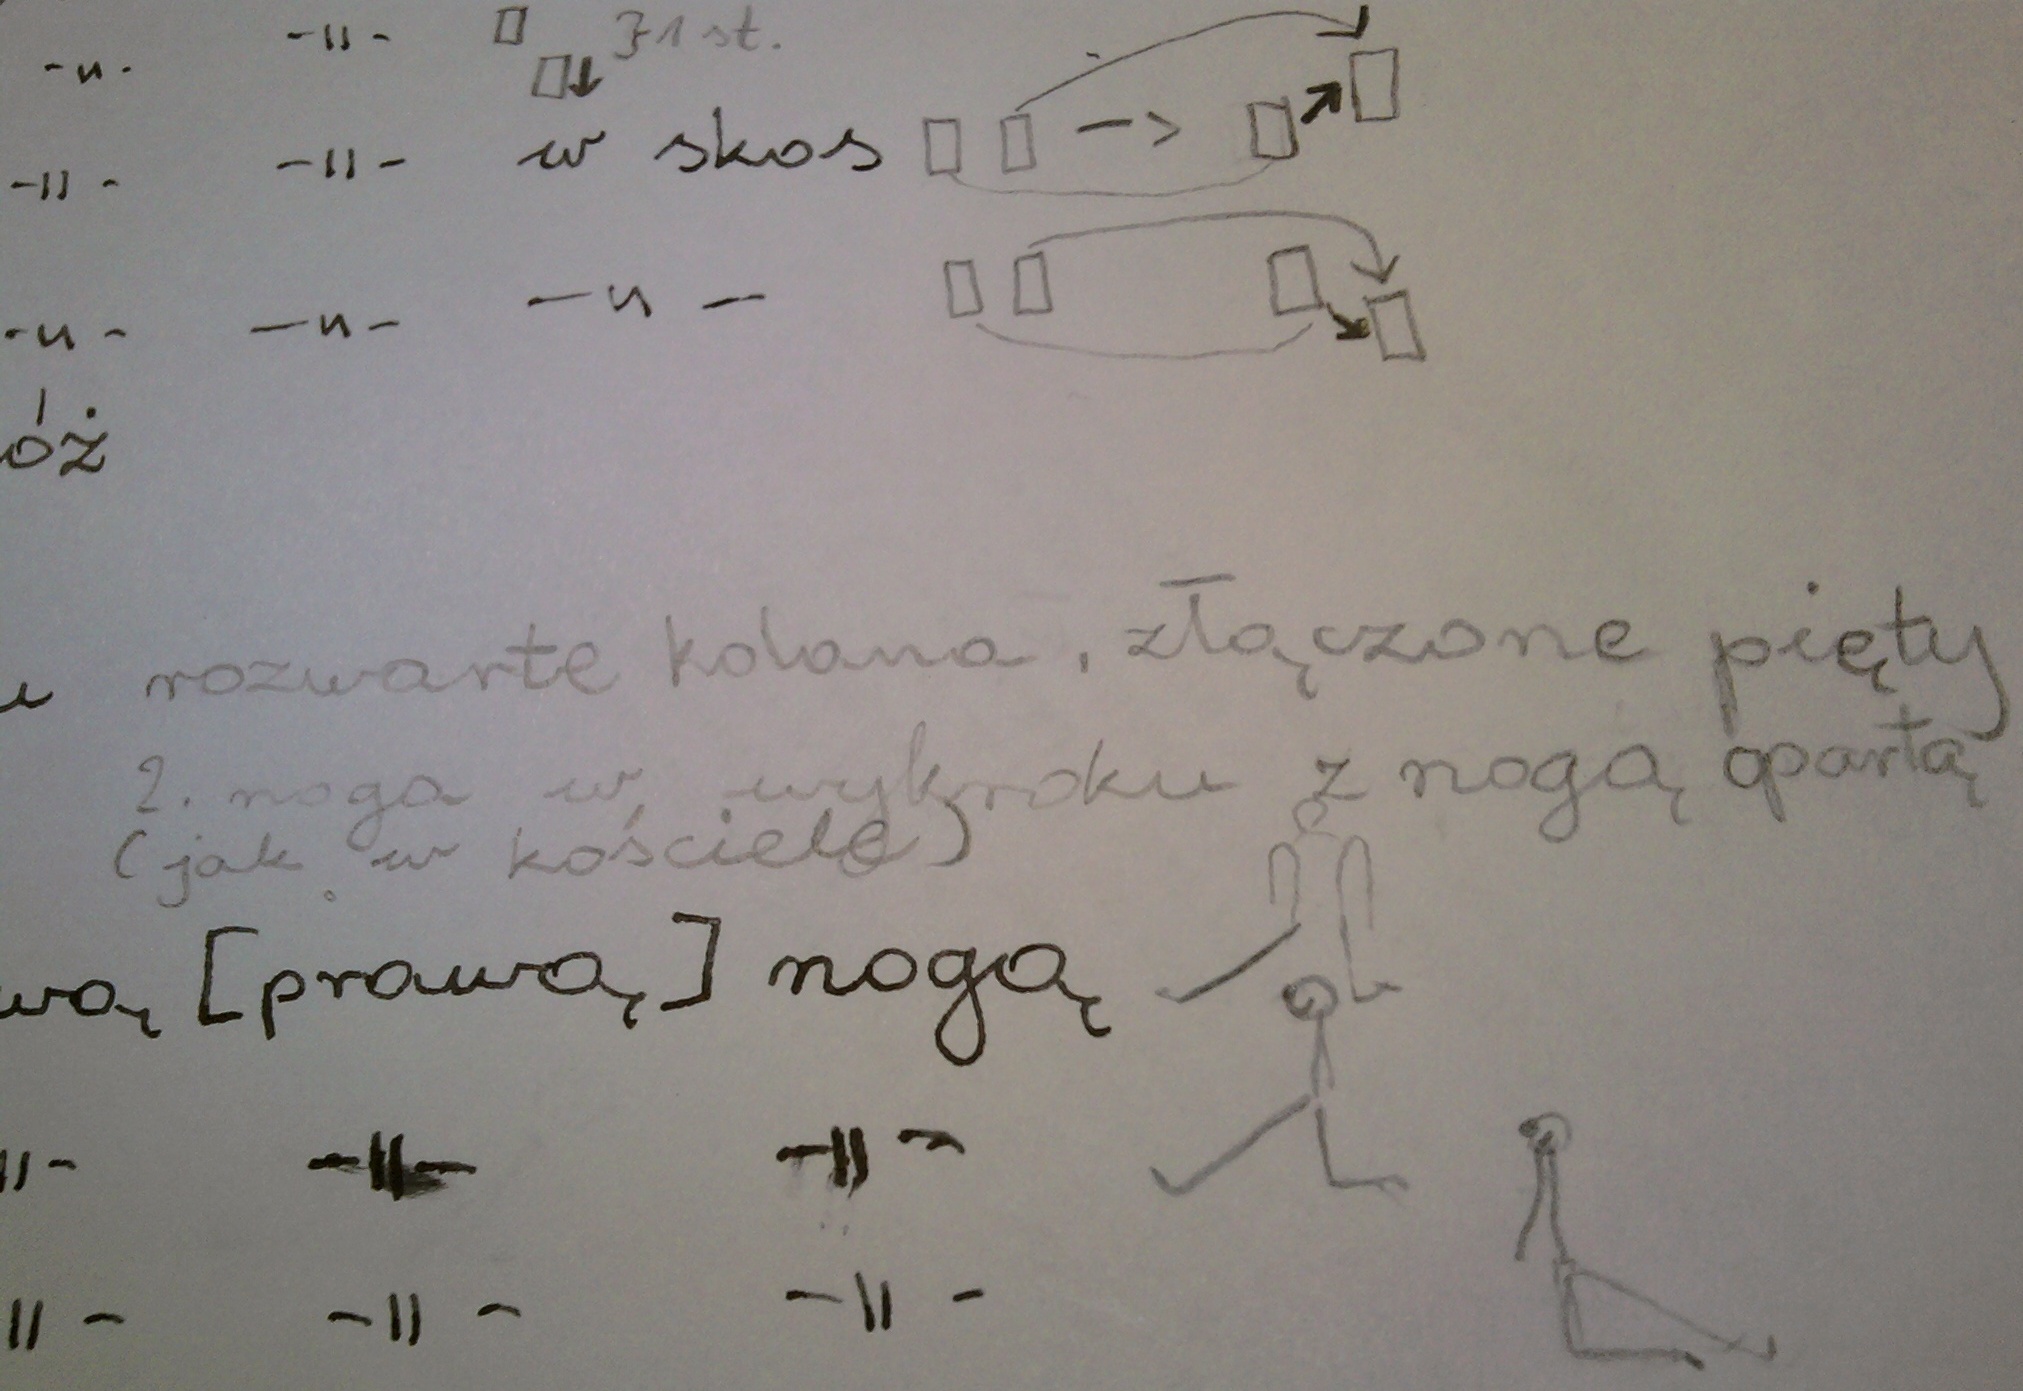 -||- }1 st.
-||-
-||- -||- w skos ->
-||- -||- -||-
óż
rozwarte kolana, złączone pięty
2. noga w wykroku z nogą opartą
(jak w kościele)
wą [prawą] nogą
||- -||- -||-
||- -||- -||-